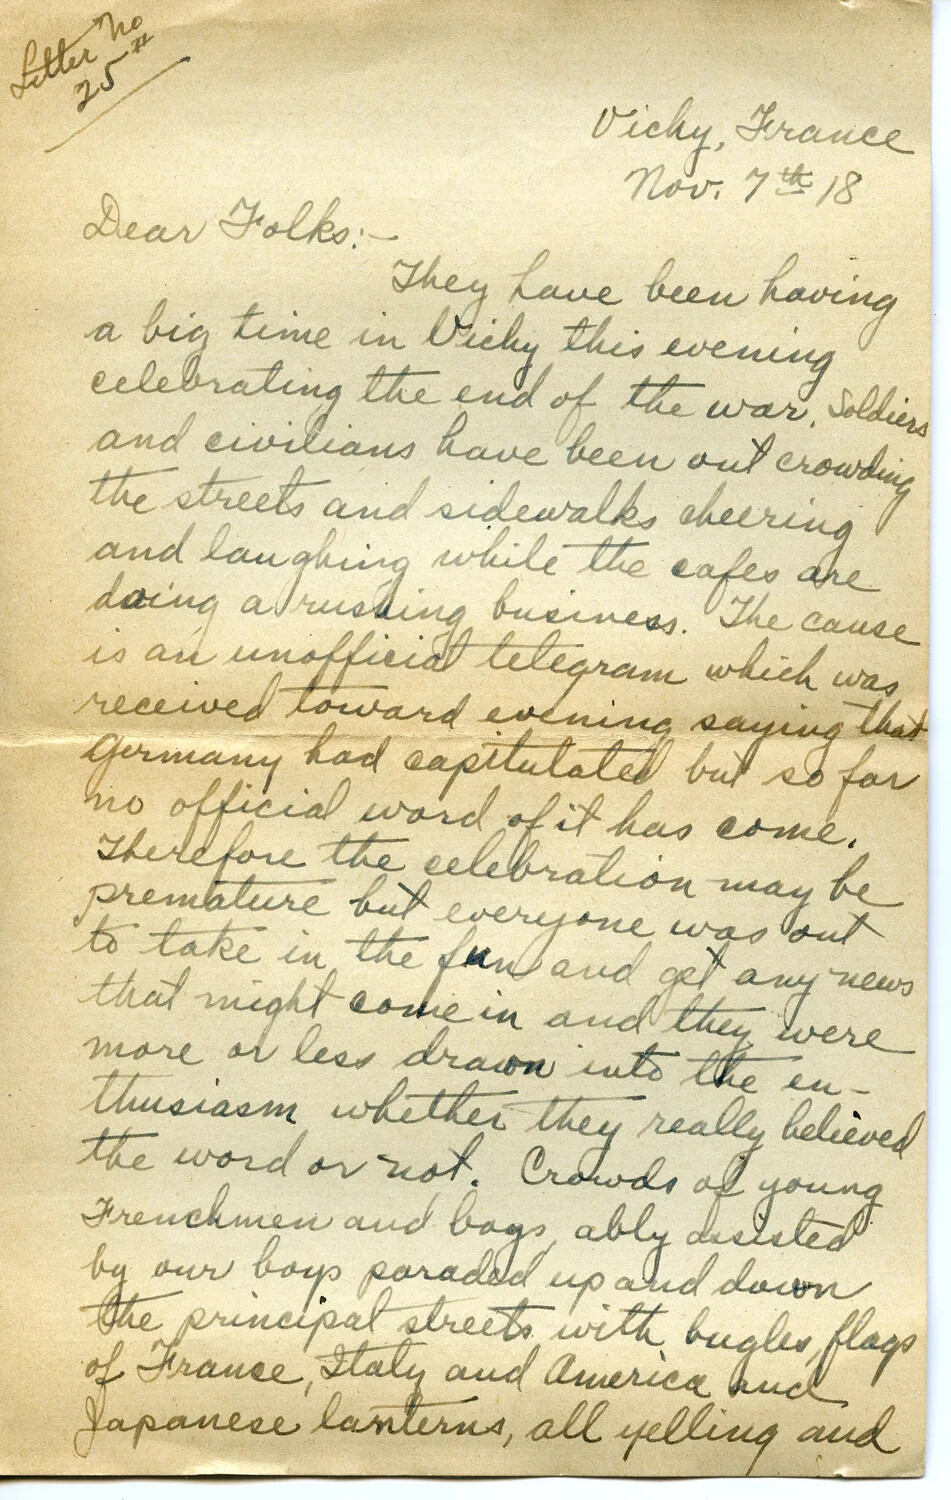 Letter No
25th
Vichy, France
Nov. 7th 18
Dear Folks:-
They have been having
a big time in Vichy this evening
celebrating the end of the war. Soldiers
and civilians have been out crowding
the streets and sidewalks cheering
and laughing while the cafes are
doing a rushing business. The cause
is an unofficial telegram which was
received toward evening saying that
Germany had capitulated but so far
no official word of it has come.
Therefore the celebration may be
premature but everyone was out
to take in the fun and get any news
that might come in and they were
more or less drawn into the en-
thusiasm whether they really believed
the word or not. Crowds of young
Frenchmen and boys, ably assisted
by our boys paraded up and down
the principal streets with bugles, flags
of France, Italy and America and
Japanese lanterns, all yelling and